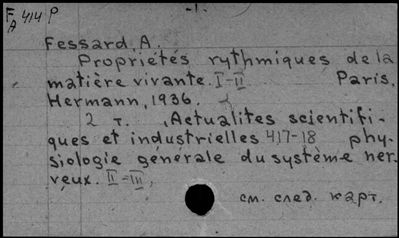 F 414 P -1-
A
Fessard, A.
Propriétés rythmiques de la
matière vivante. I-II Paris,
Hermann, 1936.
2 т. Actualités scientifi-
ques et industrielles 417-18 phy-
siologie générale du système ner-
veux. II-III,
см. след. карт.